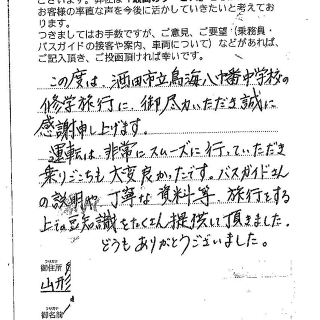 お客様の率直な声を今後に活かしていきたいと考えてお
ります。
つきましてはお手数ですが、ご意見、ご要望・(乗務員・
バスガイドの接客や案内、車両について)などがあれば、
ご記入頂き、ご投函頂ければ幸いです。
この度は、酒田市立鳥海八幡中学校の
修学旅行に、御尽力いただき誠に
感謝申し上げます。
運転は、非常にスムーズに行っていただき
乗りごこちも大変良かったです。バスガイドさん
の説明や、丁寧な資料等、旅行をする
上での豆知識をたくさん提供して頂きました。
どうもありがとうございました。
御住所
山形
御名前